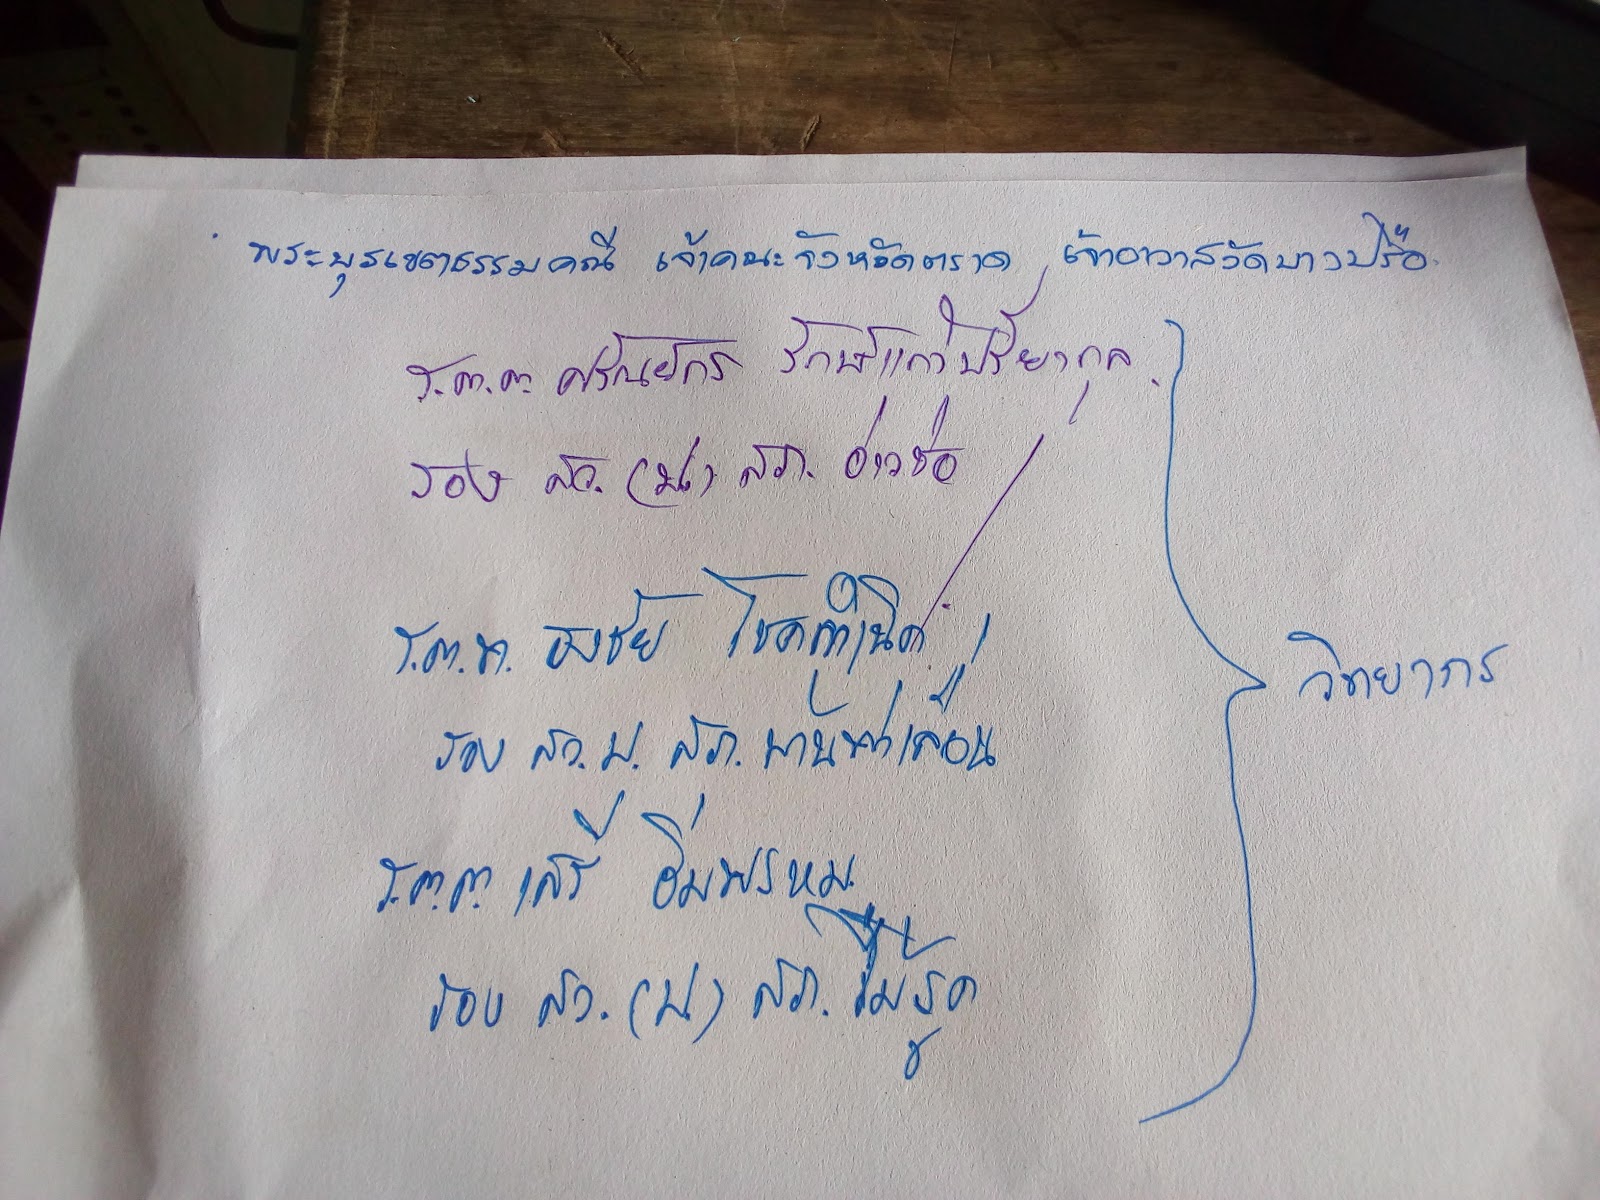 พระบุรเขตธรรมคณี เจ้าคณะจังหวัดตราด เจ้าอาวาสวัดบางปรือ
ร.ต.ต. ศรัณย์กร รักษ์แก้วปริยากุล
รอง สว. (ป) สภ. อ่าวช่อ
ร.ต.ท. ธงชัย โชคกำเนิด
รอง สว.ป. สภ. บ้านท่าเลื่อน
วิทยากร
ร.ต.ต. เสรี อิ่มพรหม
รอง สว. (ป) สภ. ไม้รูด